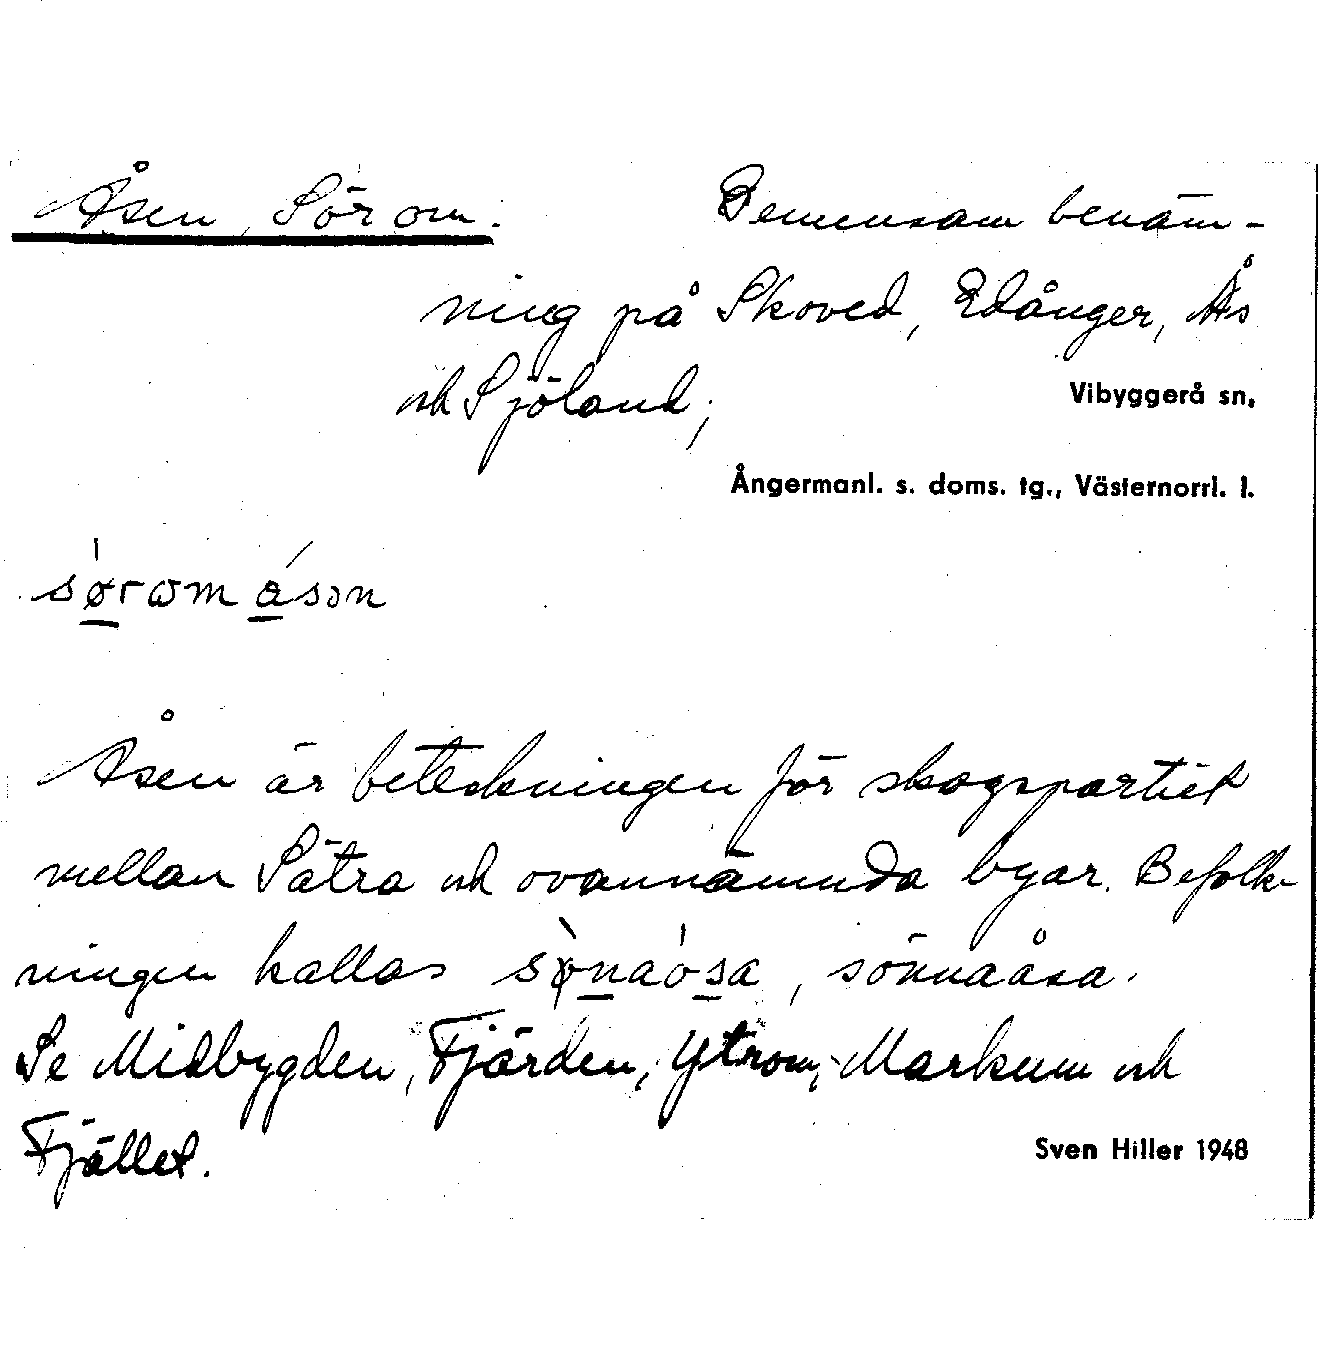 Åsen, Sör om. Gemensam benäm-
ning på Skoved, Edånger, Ås
och Sjöland;
Vibyggerå sn,
Ångermanl. s. doms. tg., Västernorrl. l.
Åsen är beteckningen för skogspartiet
mellan Sätra och ovannämnda byar. Befolk-
ningen kallas , sönnaåsa.
Se Midbygden, Fjärden, Ytrom, Markum och
Fjället.
Sven Hiller 1948